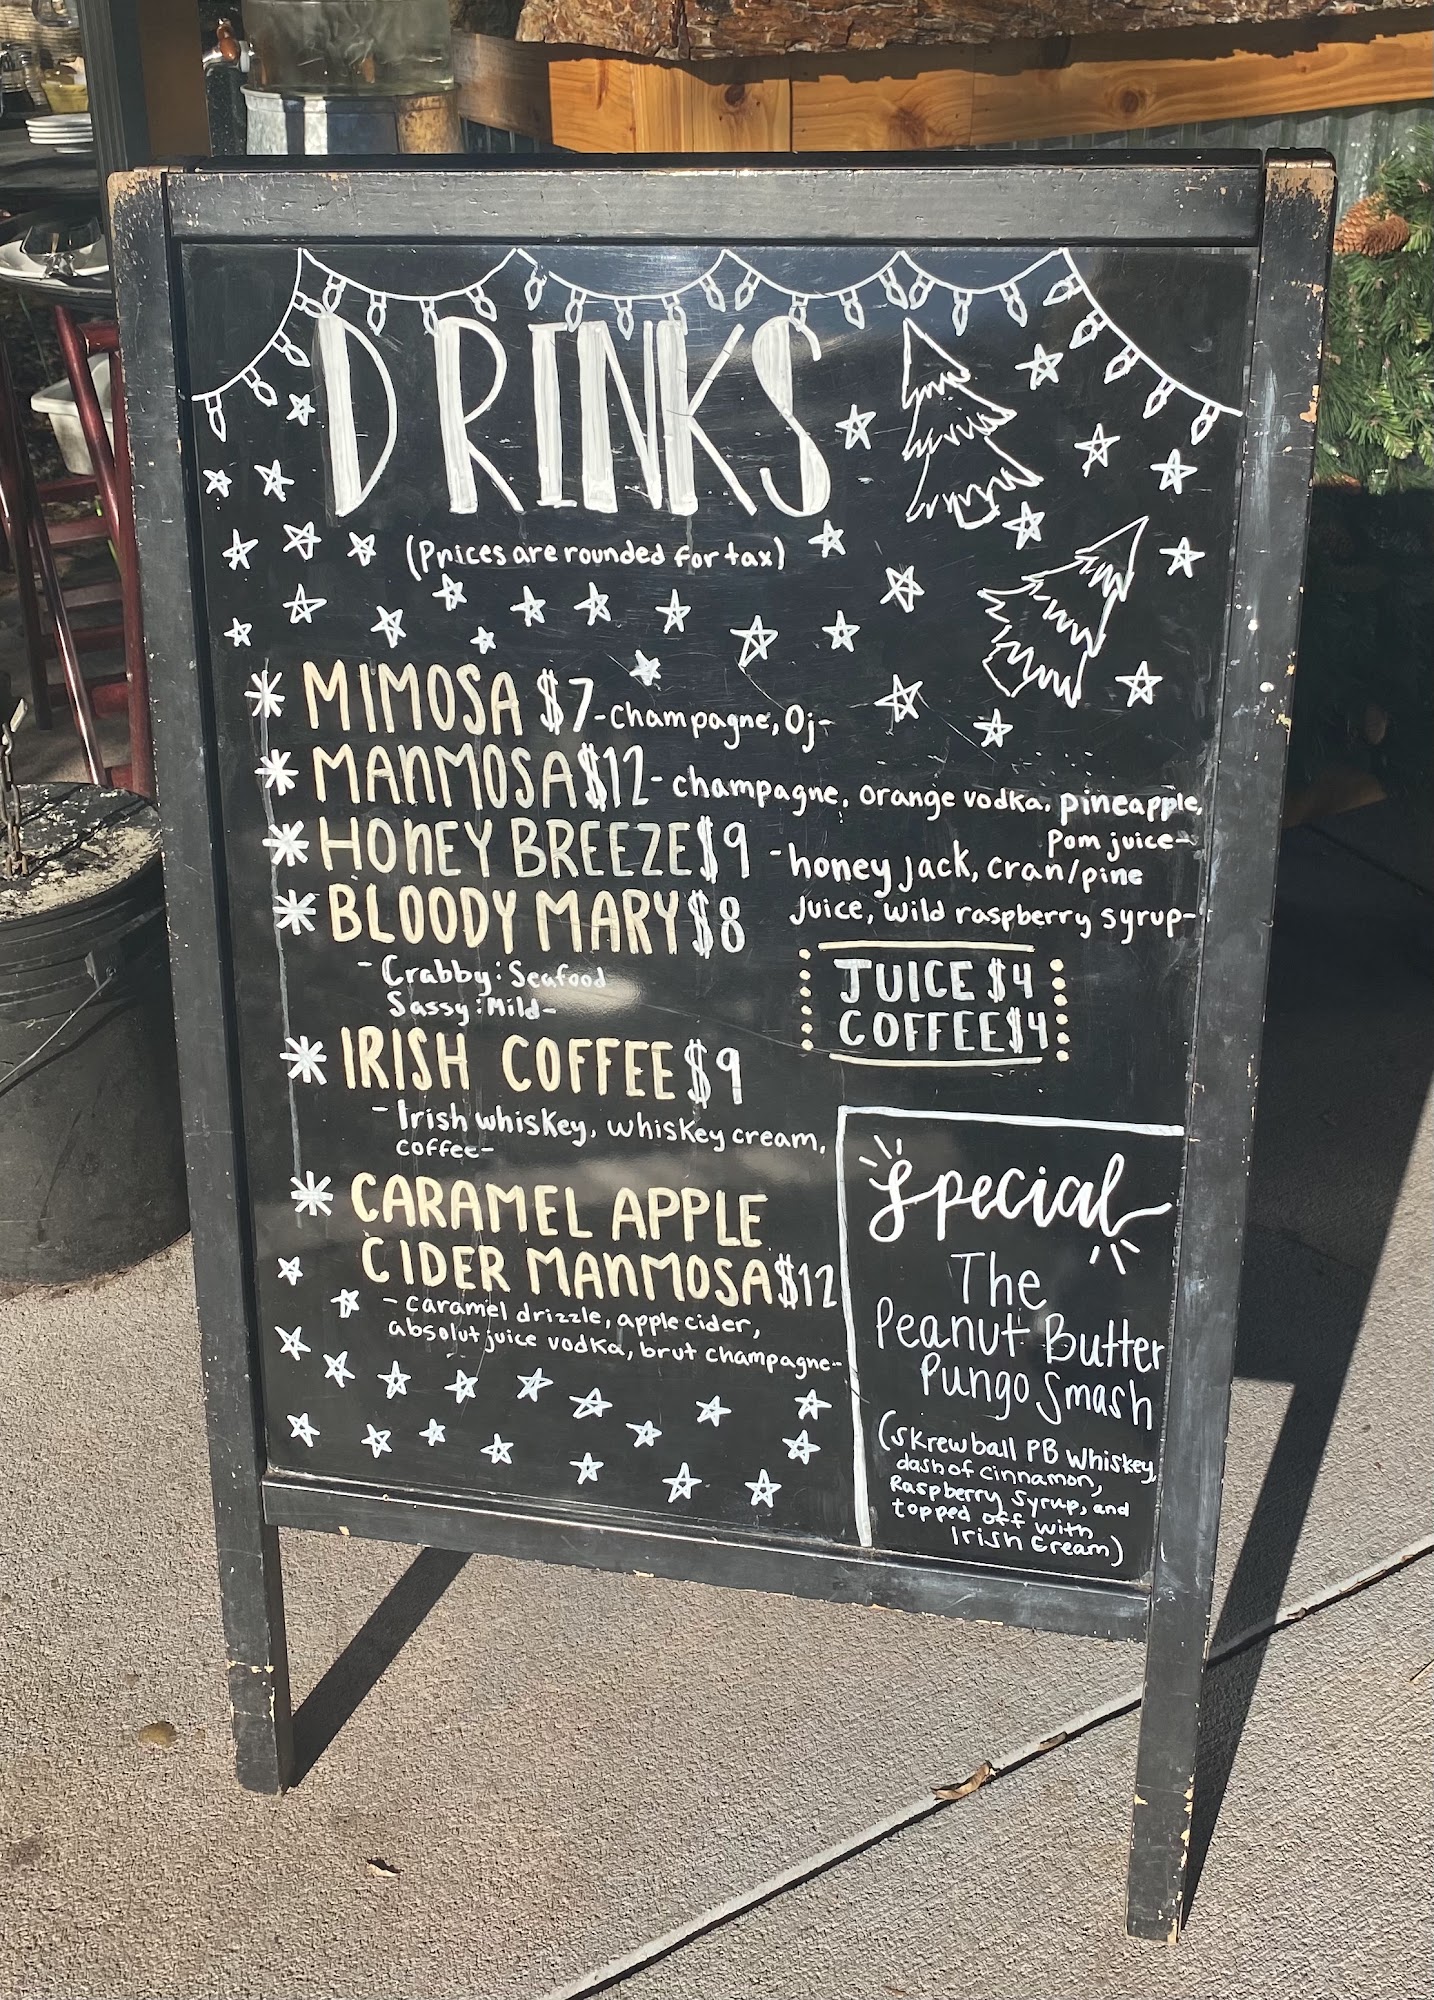 DRINKS
(Prices are rounded for tax)
MIMOSA $7 -champagne, Oj-
MANMOSA $12 - champagne, orange vodka, pineapple,
pom juice-
HONEY BREEZE $9 -honey jack, cran/pine
juice, wild raspberry syrup-
BLOODY MARY $8
- Crabby: Seafood
Sassy: Mild-
JUICE $4
COFFEE $4
IRISH COFFEE $9
- Irish whiskey, whiskey cream,
coffee-
CARAMEL APPLE
CIDER MANMOSA $12
- caramel drizzle, apple cider,
absolut juice vodka, brut champagne-
Special
The
Peanut Butter
Pungo Smash
(Skrewball PB Whiskey,
dash of cinnamon,
Raspberry Syrup, and
topped off with
Irish Cream)